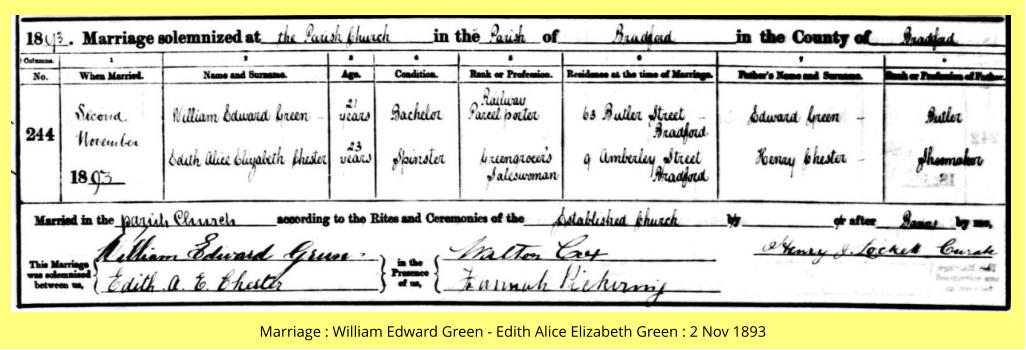 1893. Marriage solemnized at the Parish Church in the Parish of Bradford in the County of Bradford
Columns. 1 2 3 4 5 6 7 8
No. When Married. Name and Surname. Age. Condition. Rank or Profession. Residence at the time of Marriage. Father's Name and Surname. Rank or Profession of Father.
244
Second
November
1893
William Edward Green -
21
years
Bachelor
Railway
Parcel porter
63 Butler Street
Bradford
Edward Green -
Butler
Edith Alice Elizabeth Chester
23
years
Spinster
Greengrocer's
Saleswoman
9 Amberley Street
Bradford
Henry Chester -
Shoemaker
Married in the parish Church according to the Rites and Ceremonies of the Established Church by or after Banns by me,
This Marriage
was solemnized
between us,
William Edward Green
Edith A. E. Chester
in the
Presence
of us,
Walton Cox
Hannah Pickering
Henry J. Lockett Curate
Marriage : William Edward Green - Edith Alice Elizabeth Green : 2 Nov 1893